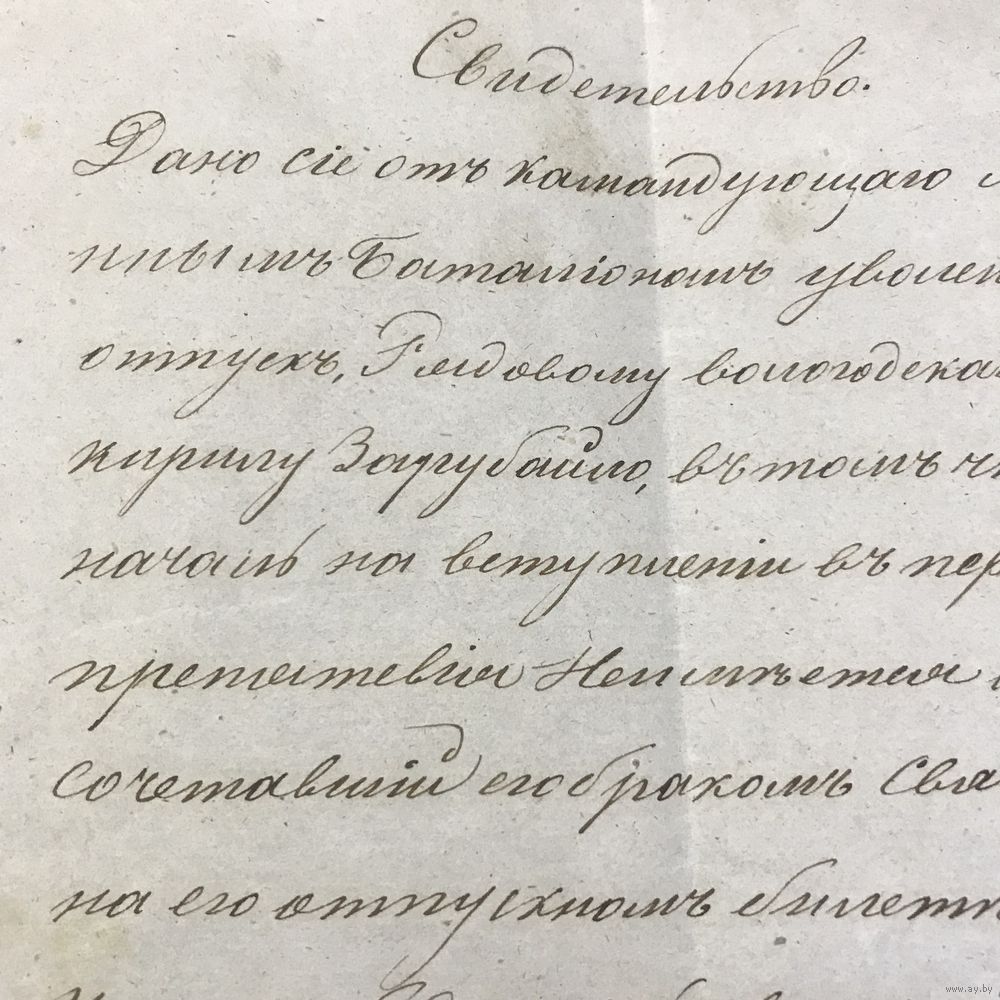 Свидетельство.
Дано сіе отъ камандующаго
ннымъ Баталіономъ уволен
отпускъ, Рядовому вологодска
кирилу Зарубайло, въ томъ ч
началъ на вступленіи въ пер
препятствія Неимѣется
сочетавшій его бракомъ Свя
на его отпускномъ билетѣ
www.ay.by